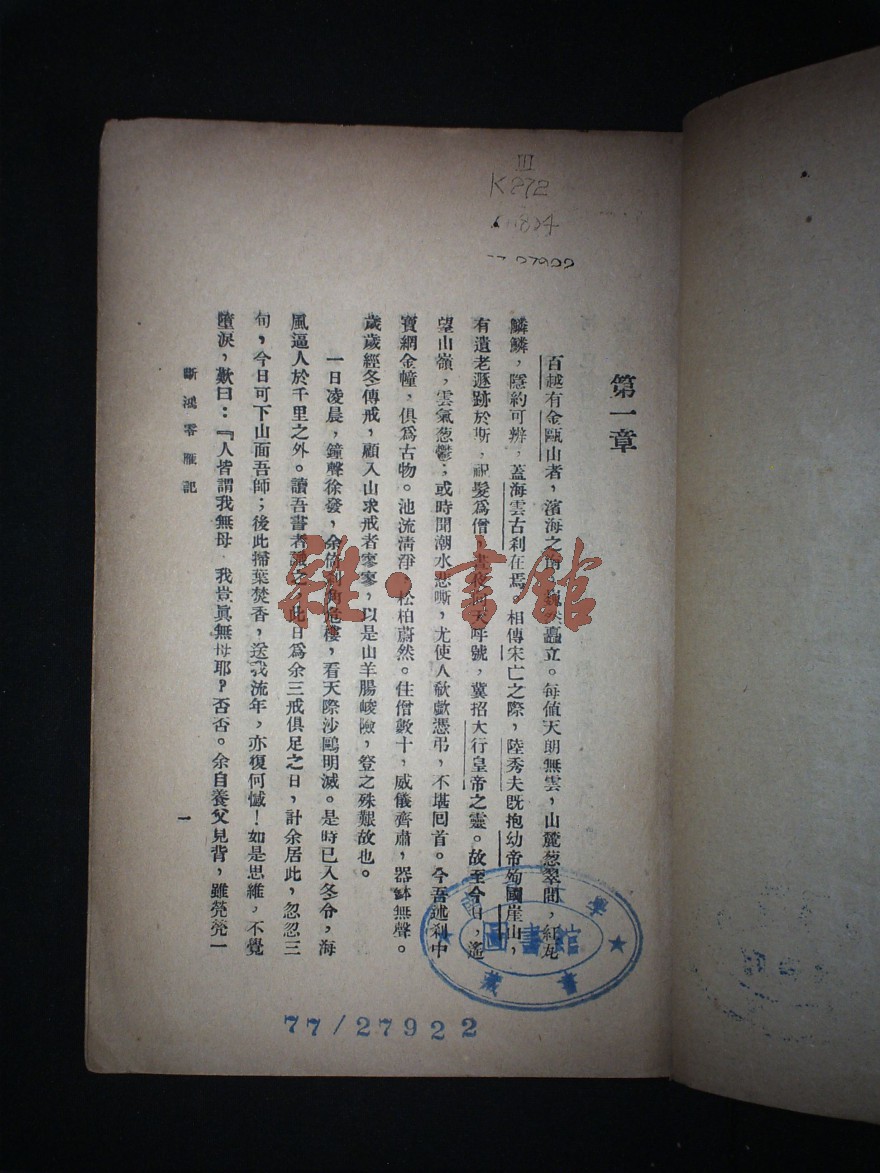 III
K272
第一章
百越有金甌山者，濱海之 立。每値天朗無雲，山麓葱翠間，紅瓦
鱗鱗，隱約可辨，蓋海雲古刹在焉。相傳宋亡之際，陸秀夫旣抱幼帝殉國崖山，
有遺老遯跡於斯，祝髮爲僧，晝夜向天呼號，冀招大行皇帝之靈。故至今日，遙
望山嶺，雲氣葱鬱；或時聞潮水悲嘶，尤使人欷歔憑弔，不堪回首。今吾述刹中
寶網金幢，俱爲古物。池流淸淨，松柏蔚然。住僧數十，威儀齊肅，器鉢無聲。
歲歲經冬傳戒，顧入山求戒者寥寥，以是山羊腸峻險，登之殊艱故也。
一日凌晨，鐘聲徐發，余倚刹角危樓，看天際沙鷗明滅。是時已入冬令，海
風逼人於千里之外。讀吾書者識之，此日爲余三戒俱足之日，計余居此，忽忽三
旬，今日可下山面吾師；後此掃葉焚香，送我流年，亦復何憾！如是思維，不覺
墮淚，歎曰：『人皆謂我無母，我豈眞無母耶？否否。余自養父見背，雖煢煢一
斷鴻零雁記
一
圖書館
藏書
77/27922
雜·書館